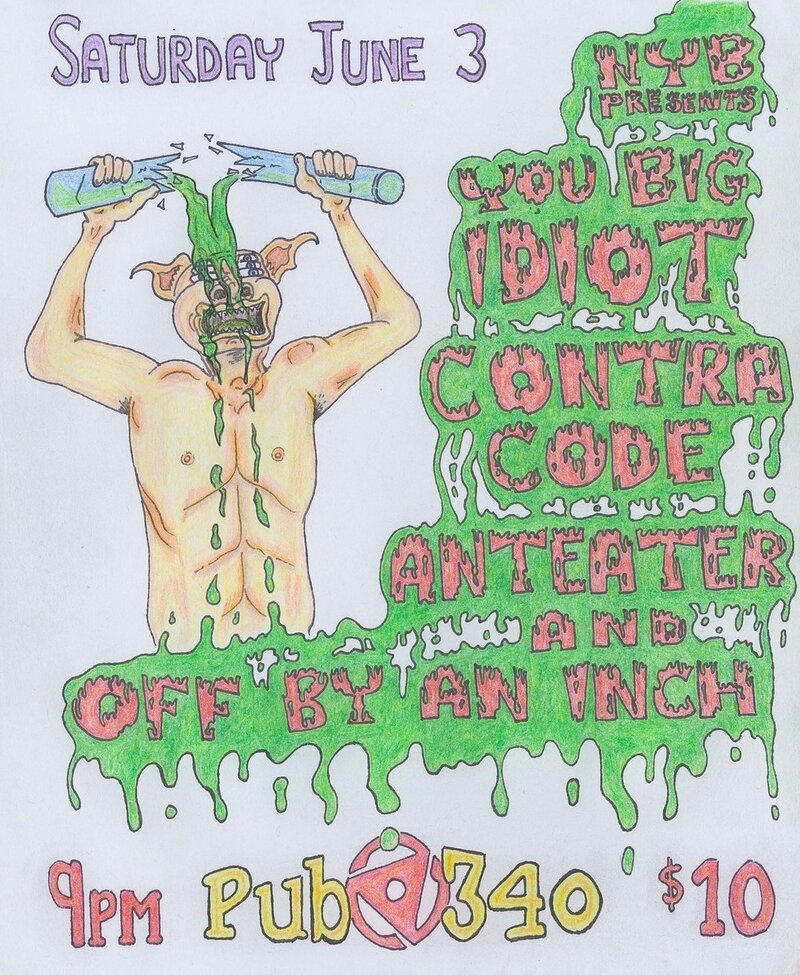 SATURDAY JUNE 3
NYB
PRESENTS
YOU BIG
IDIOT
CONTRA
CODE
ANTEATER
AND
OFF BY AN INCH
9PM Pub 340 $10